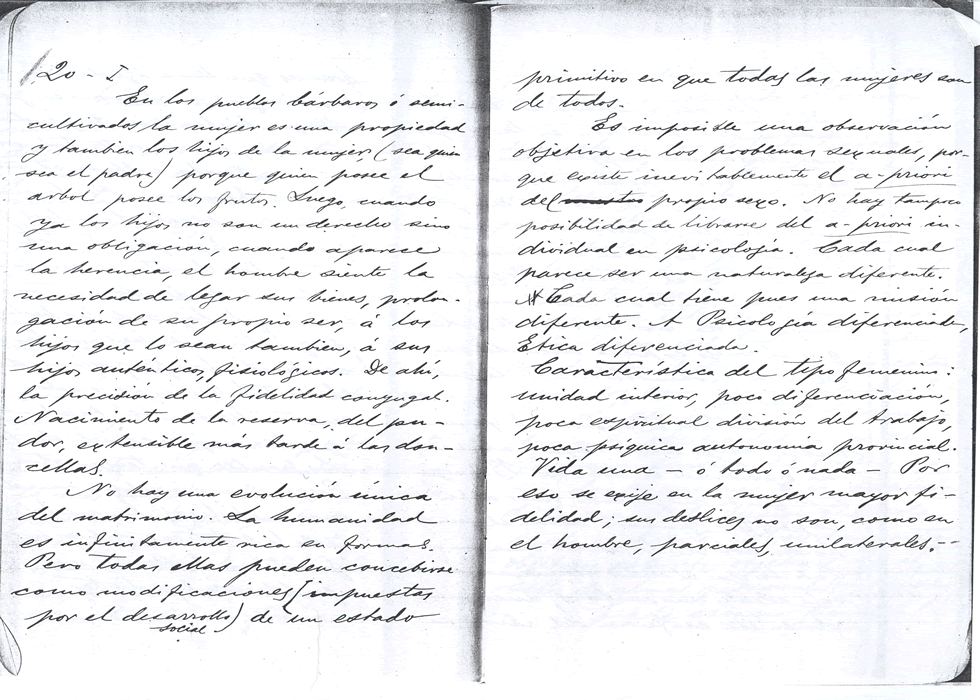 20 - I
En los pueblos bárbaros ó semi-
cultivados la mujer es una propiedad
y tambien los hijos de la mujer (sea quien
sea el padre) porque quien posee el
arbol posee los frutos. Luego, cuando
ya los hijos no son un derecho sino
una obligación, cuando aparece
la herencia, el hombre siente la
necesidad de legar sus bienes, prolon-
gación de su propio ser, á los
hijos que lo sean tambien, á sus
hijos auténticos, fisiológicos. De ahí,
la precisión de la fidelidad conyugal.
Nacimiento de la reserva, del pu-
dor, extensible más tarde á las don-
cellas.
No hay una evolución única
del matrimonio. La humanidad
es infinitamente rica en formas.
Pero todas ellas pueden concebirse
como modificaciones (impuestas
por el desarrollo) de un estado
social
primitivo en que todas las mujeres son
de todos.
Es imposible una observación
objetiva en los problemas sexuales, por-
que existe inevitablemente el a-priori
del propio sexo. No hay tampoco
posibilidad de librarse del a-priori in-
dividual en psicología. Cada cual
parece ser una naturaleza diferente.
Cada cual tiene pues una misión
diferente. A Psicología diferenciada,
Etica diferenciada.
Característica del tipo femenino:
unidad interior, poca diferenciación,
poca espiritual división del trabajo,
poca psiquica autonomía provincial.
Vida una — ó todo ó nada — Por
eso se exije en la mujer mayor fi-
delidad; sus deslices no son, como en
el hombre, parciales, unilaterales.--